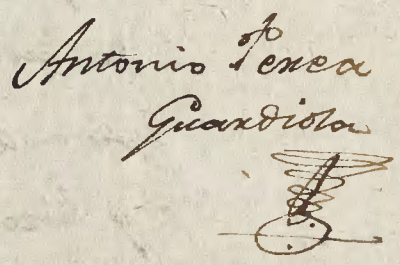 Antonio Perea
Guardiola